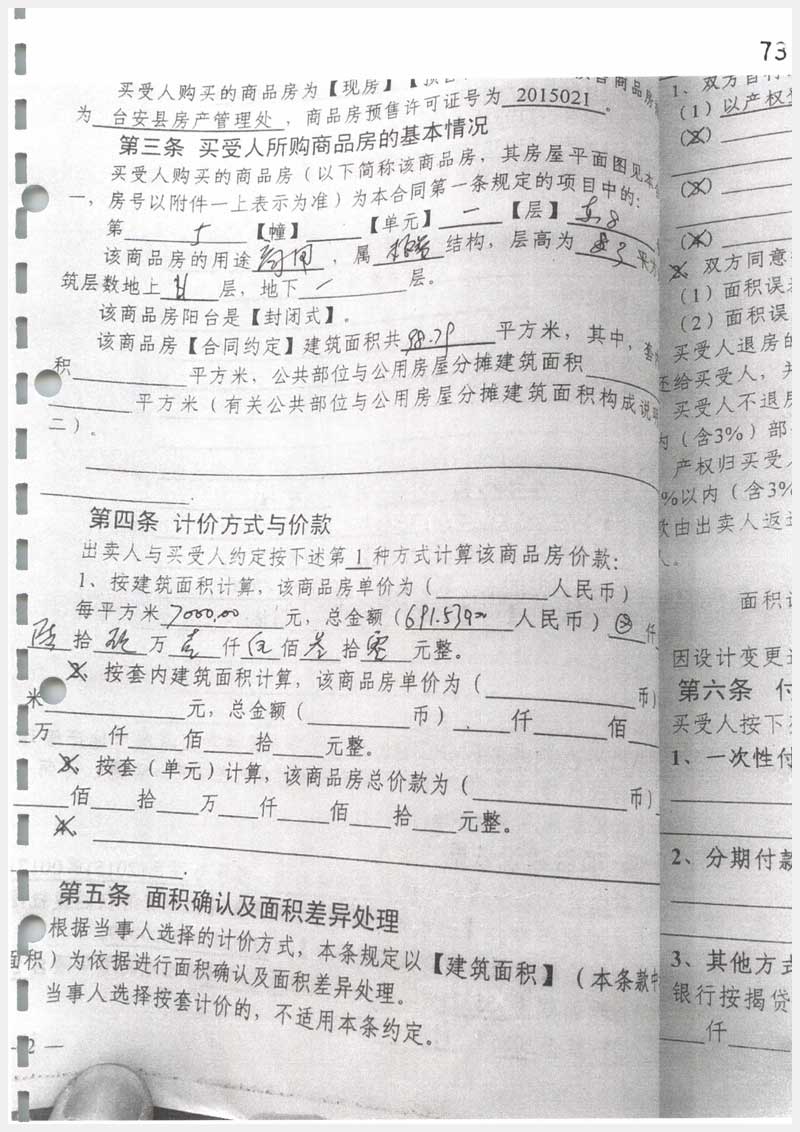 73
买受人购买的商品房为【现房】
为 台安县房产管理处 ，商品房预售许可证号为 2015021 。
第三条 买受人所购商品房的基本情况
买受人购买的商品房（以下简称该商品房，其房屋平面图见本
一，房号以附件一上表示为准）为本合同第一条规定的项目中的：
第 5 【幢】 【单元】 一 【层】
该商品房的用途 ，属 结构，层高为
筑层数地上 层，地下 一 层。
该商品房阳台是【封闭式】。
该商品房【合同约定】建筑面积共 98.79 平方米，其中，套
积 平方米，公共部位与公用房屋分摊建筑面积
平方米（有关公共部位与公用房屋分摊建筑面积构成说
二）。
第四条 计价方式与价款
出卖人与买受人约定按下述第 1 种方式计算该商品房价款：
1、按建筑面积计算，该商品房单价为（ 人民币）
每平方米 7000.00 元，总金额（ 人民币） 仟
陆 拾 玖 万 壹 仟 伍 佰 叁 拾 零 元整。
2、按套内建筑面积计算，该商品房单价为（ 币）
米 元，总金额（ 币） 仟 佰
万 仟 佰 拾 元整。
3、按套（单元）计算，该商品房总价款为（ 币）
佰 拾 万 仟 佰 拾 元整。
4、
第五条 面积确认及面积差异处理
根据当事人选择的计价方式，本条规定以【建筑面积】（本条款中
面积）为依据进行面积确认及面积差异处理。
当事人选择按套计价的，不适用本条约定。
2 —
1、双方自行
（1）以产权
（2）
（3）
（4）
2、双方同意
（1）面积误
（2）面积误
买受人退房的
还给买受人，
买受人不退房
内（含3%）部
产权归买受人
%以内（含3%
款由出卖人返
面积
因设计变更
第六条 付
买受人按下
1、一次性付
2、分期付款
3、其他方式
银行按揭贷
仟